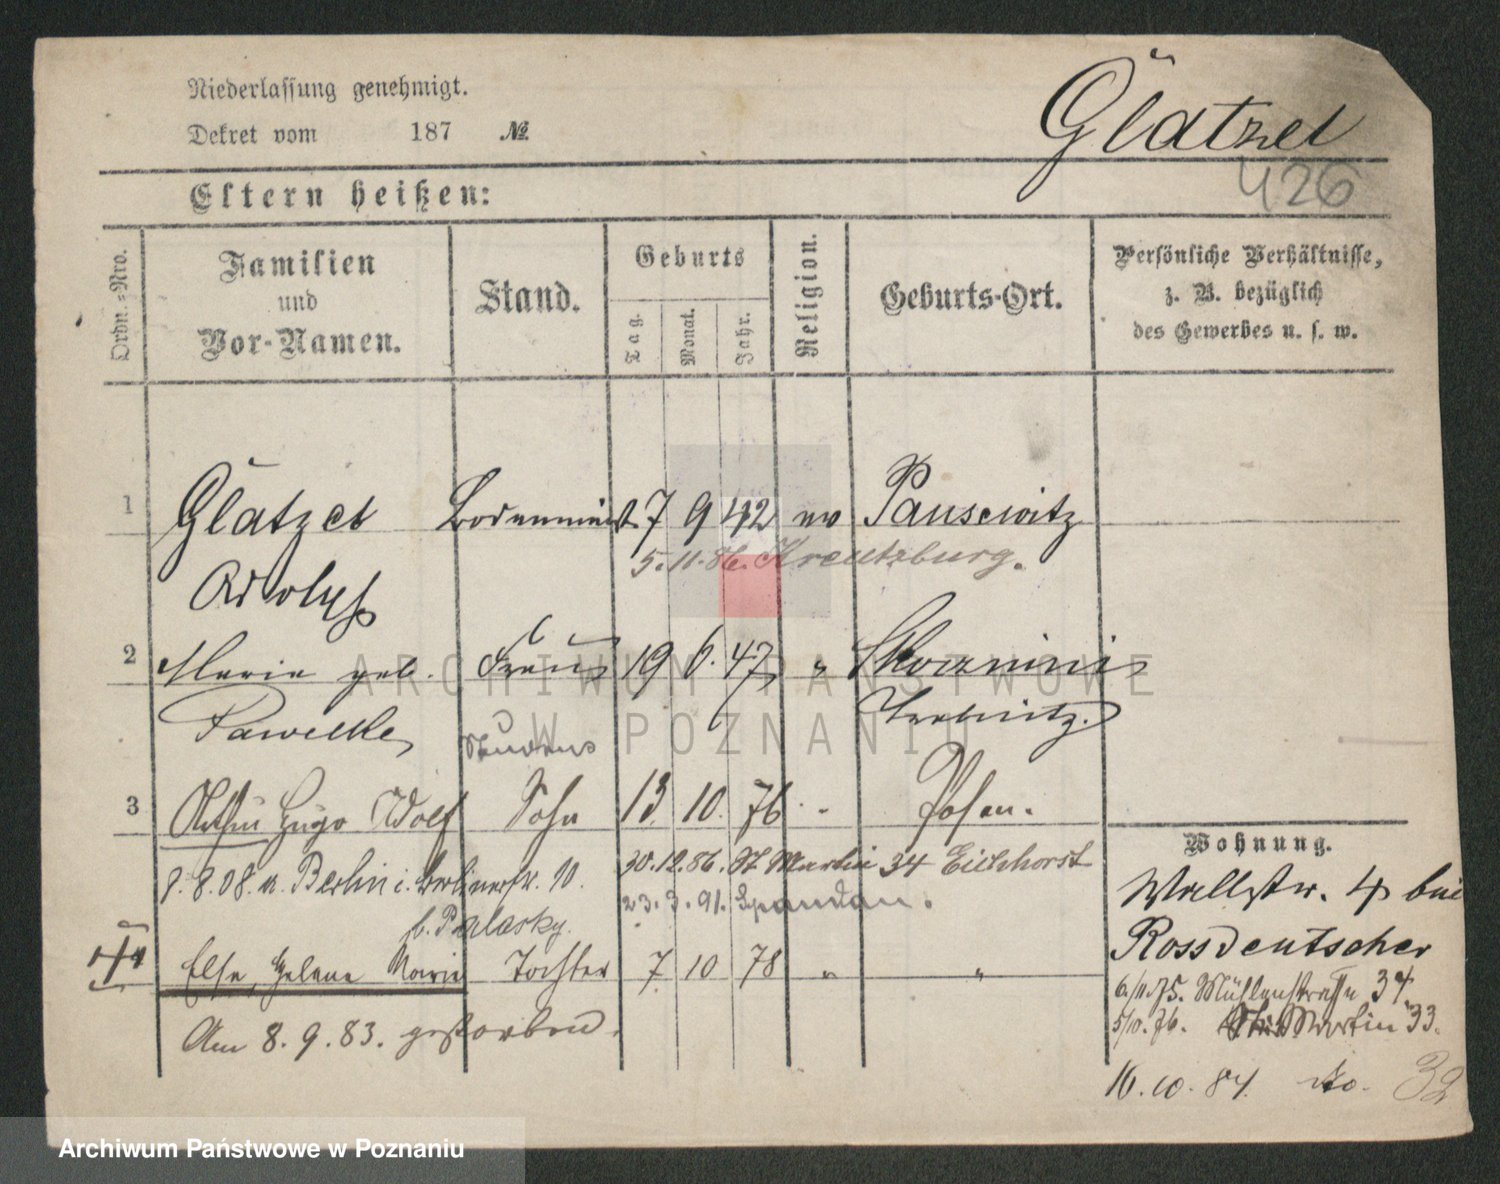 Niederlassung genehmigt.
Dekret vom 187 №
Glatzel
426
Eltern heißen:
Ordn.-Nro.
Familien
und
Vor-Namen.
Stand.
Geburts
Tag.
Monat.
Jahr.
Religion.
Geburts-Ort.
Persönliche Verhältnisse,
z. B. bezüglich
des Gewerbes u. s. w.
1 Glatzel 7 9 42 ev Pausewitz
5.11.86. Kreutzburg.
Adolph
2 Marie geb. Frau 19 6. 47 "
Pawelke
Trebnitz.
3 Arthur Hugo Adolf Sohn 13 10. 76 Posen.
Wohnung.
30.12.86. St. Martin 34 Eichhorst
8.8.08. n. Berlin i. Berlinerstr. 10.
23.3.91. Spandau.
b. Palasky.
Wallstr. 4 bei
Rossdeutscher
4 Else, Helene Marie Tochter 7 10 78 " "
6/11.75. Mühlenstraße 34.
5/10.76. St. Martin 33.
Am 8.9.83. gestorben.
16.10.84. do. 32
ARCHIWUM PAŃSTWOWE
W POZNANIU
Archiwum Państwowe w Poznaniu